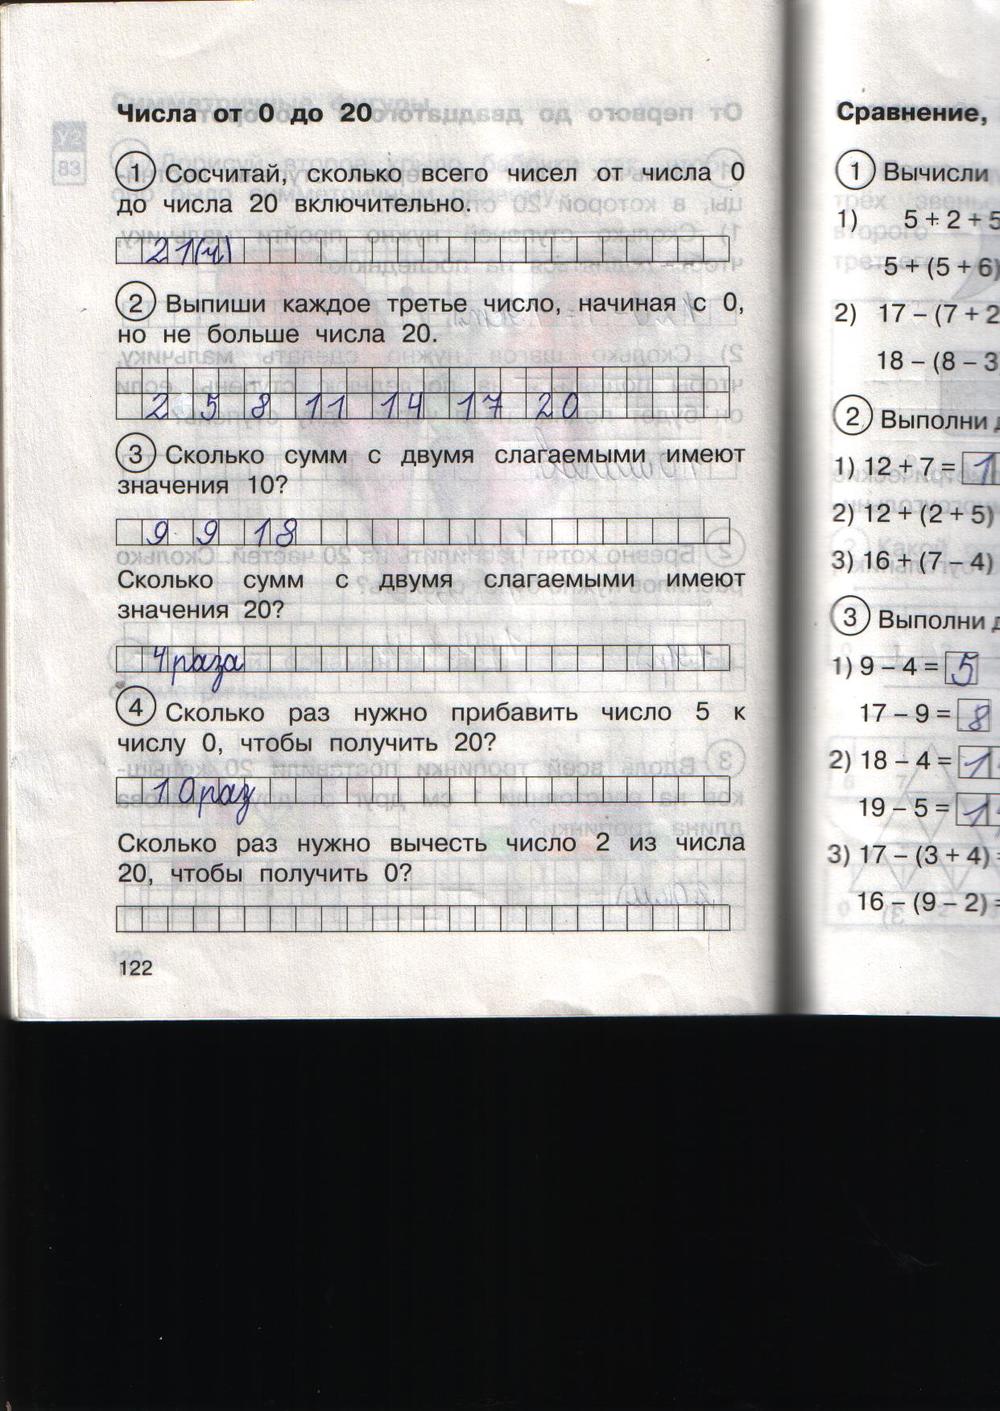 Числа от 0 до 20
У2
83
1 Сосчитай, сколько всего чисел от числа 0
до числа 20 включительно.
21(ч.)
2 Выпиши каждое третье число, начиная с 0,
но не больше числа 20.
2 5 8 11 14 17 20
3 Сколько сумм с двумя слагаемыми имеют
значения 10?
9 9 18
Сколько сумм с двумя слагаемыми имеют
значения 20?
4 раза
4 Сколько раз нужно прибавить число 5 к
числу 0, чтобы получить 20?
10 раз
Сколько раз нужно вычесть число 2 из числа
20, чтобы получить 0?
122
Сравнение,
1 Вычисли
1) 5 + 2 + 5
5 + (5 + 6)
2) 17 – (7 + 2
18 – (8 – 3
2 Выполни
1) 12 + 7 = 1
2) 12 + (2 + 5)
3) 16 + (7 – 4)
3 Выполни
1) 9 – 4 = 5
17 – 9 = 8
2) 18 – 4 = 1
19 – 5 = 1
3) 17 – (3 + 4) =
16 – (9 – 2) =